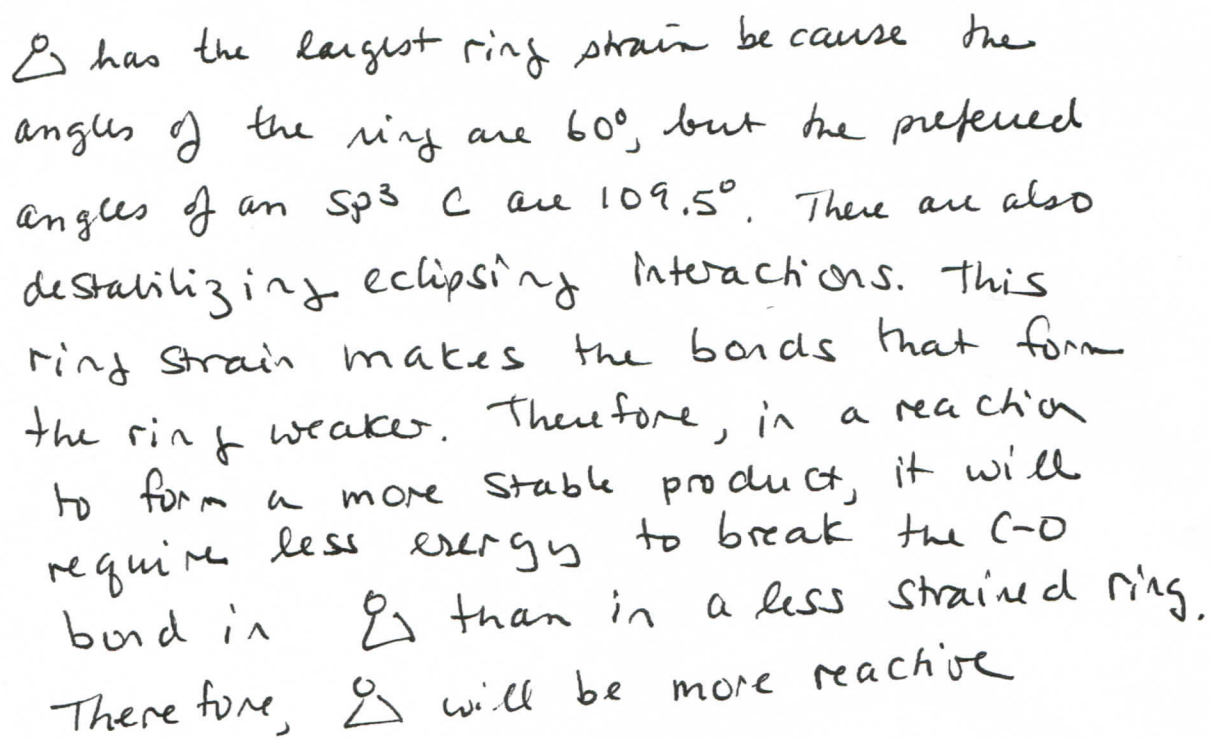 has the largest ring strain because the
angles of the ring are 60°, but the preferred
angles of an sp³ C are 109.5°. There are also
destabilizing eclipsing interactions. This
ring strain makes the bonds that form
the ring weaker. Therefore, in a reaction
to form a more stable product, it will
require less energy to break the C-O
bond in O than in a less strained ring.
Therefore, O will be more reactive